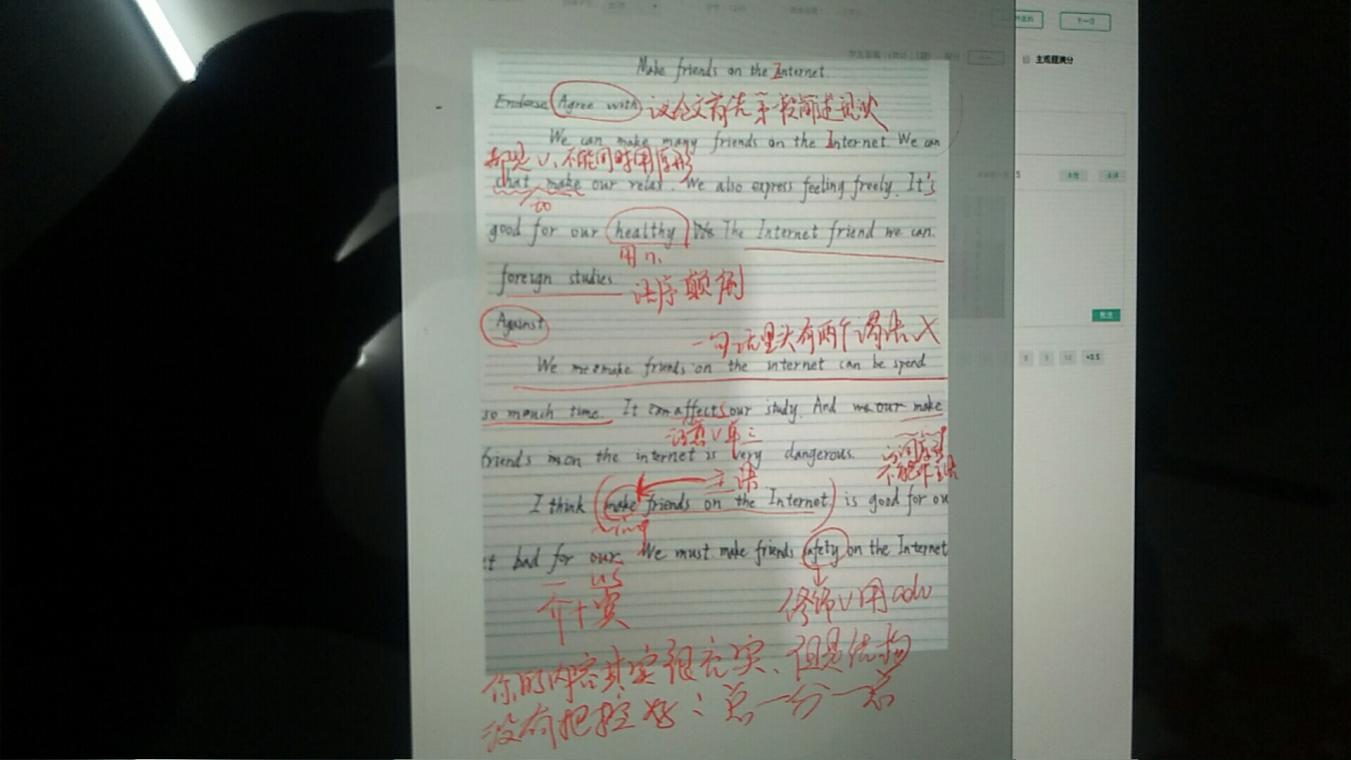 Make friends on the Internet.
Endorse Agree with 议论文首先第一段简述现状
We can make many friends on the Internet. We can
都是 V. 不能同时用原形
chat make our relax. We also express feeling freely. It's
to
good for our healthy. The Internet friend we can.
用 n.
foreign studies. 语序颠倒
Against
一句话里头有两个谓语 X
We make friends on the internet can be spend
so mouch time. It can affects our study. And our make
V 单三
friends on the internet is very dangerous.
不能作主语
主语
I think make friends on the Internet is good for ou
ing
t bad for our. We must make friends safety on the Internet
us
介+宾
修饰 V 用 adv
你的内容其实很充实、但是结构
没有把控好：总一分一总
主观题满分
下一份
+0.5